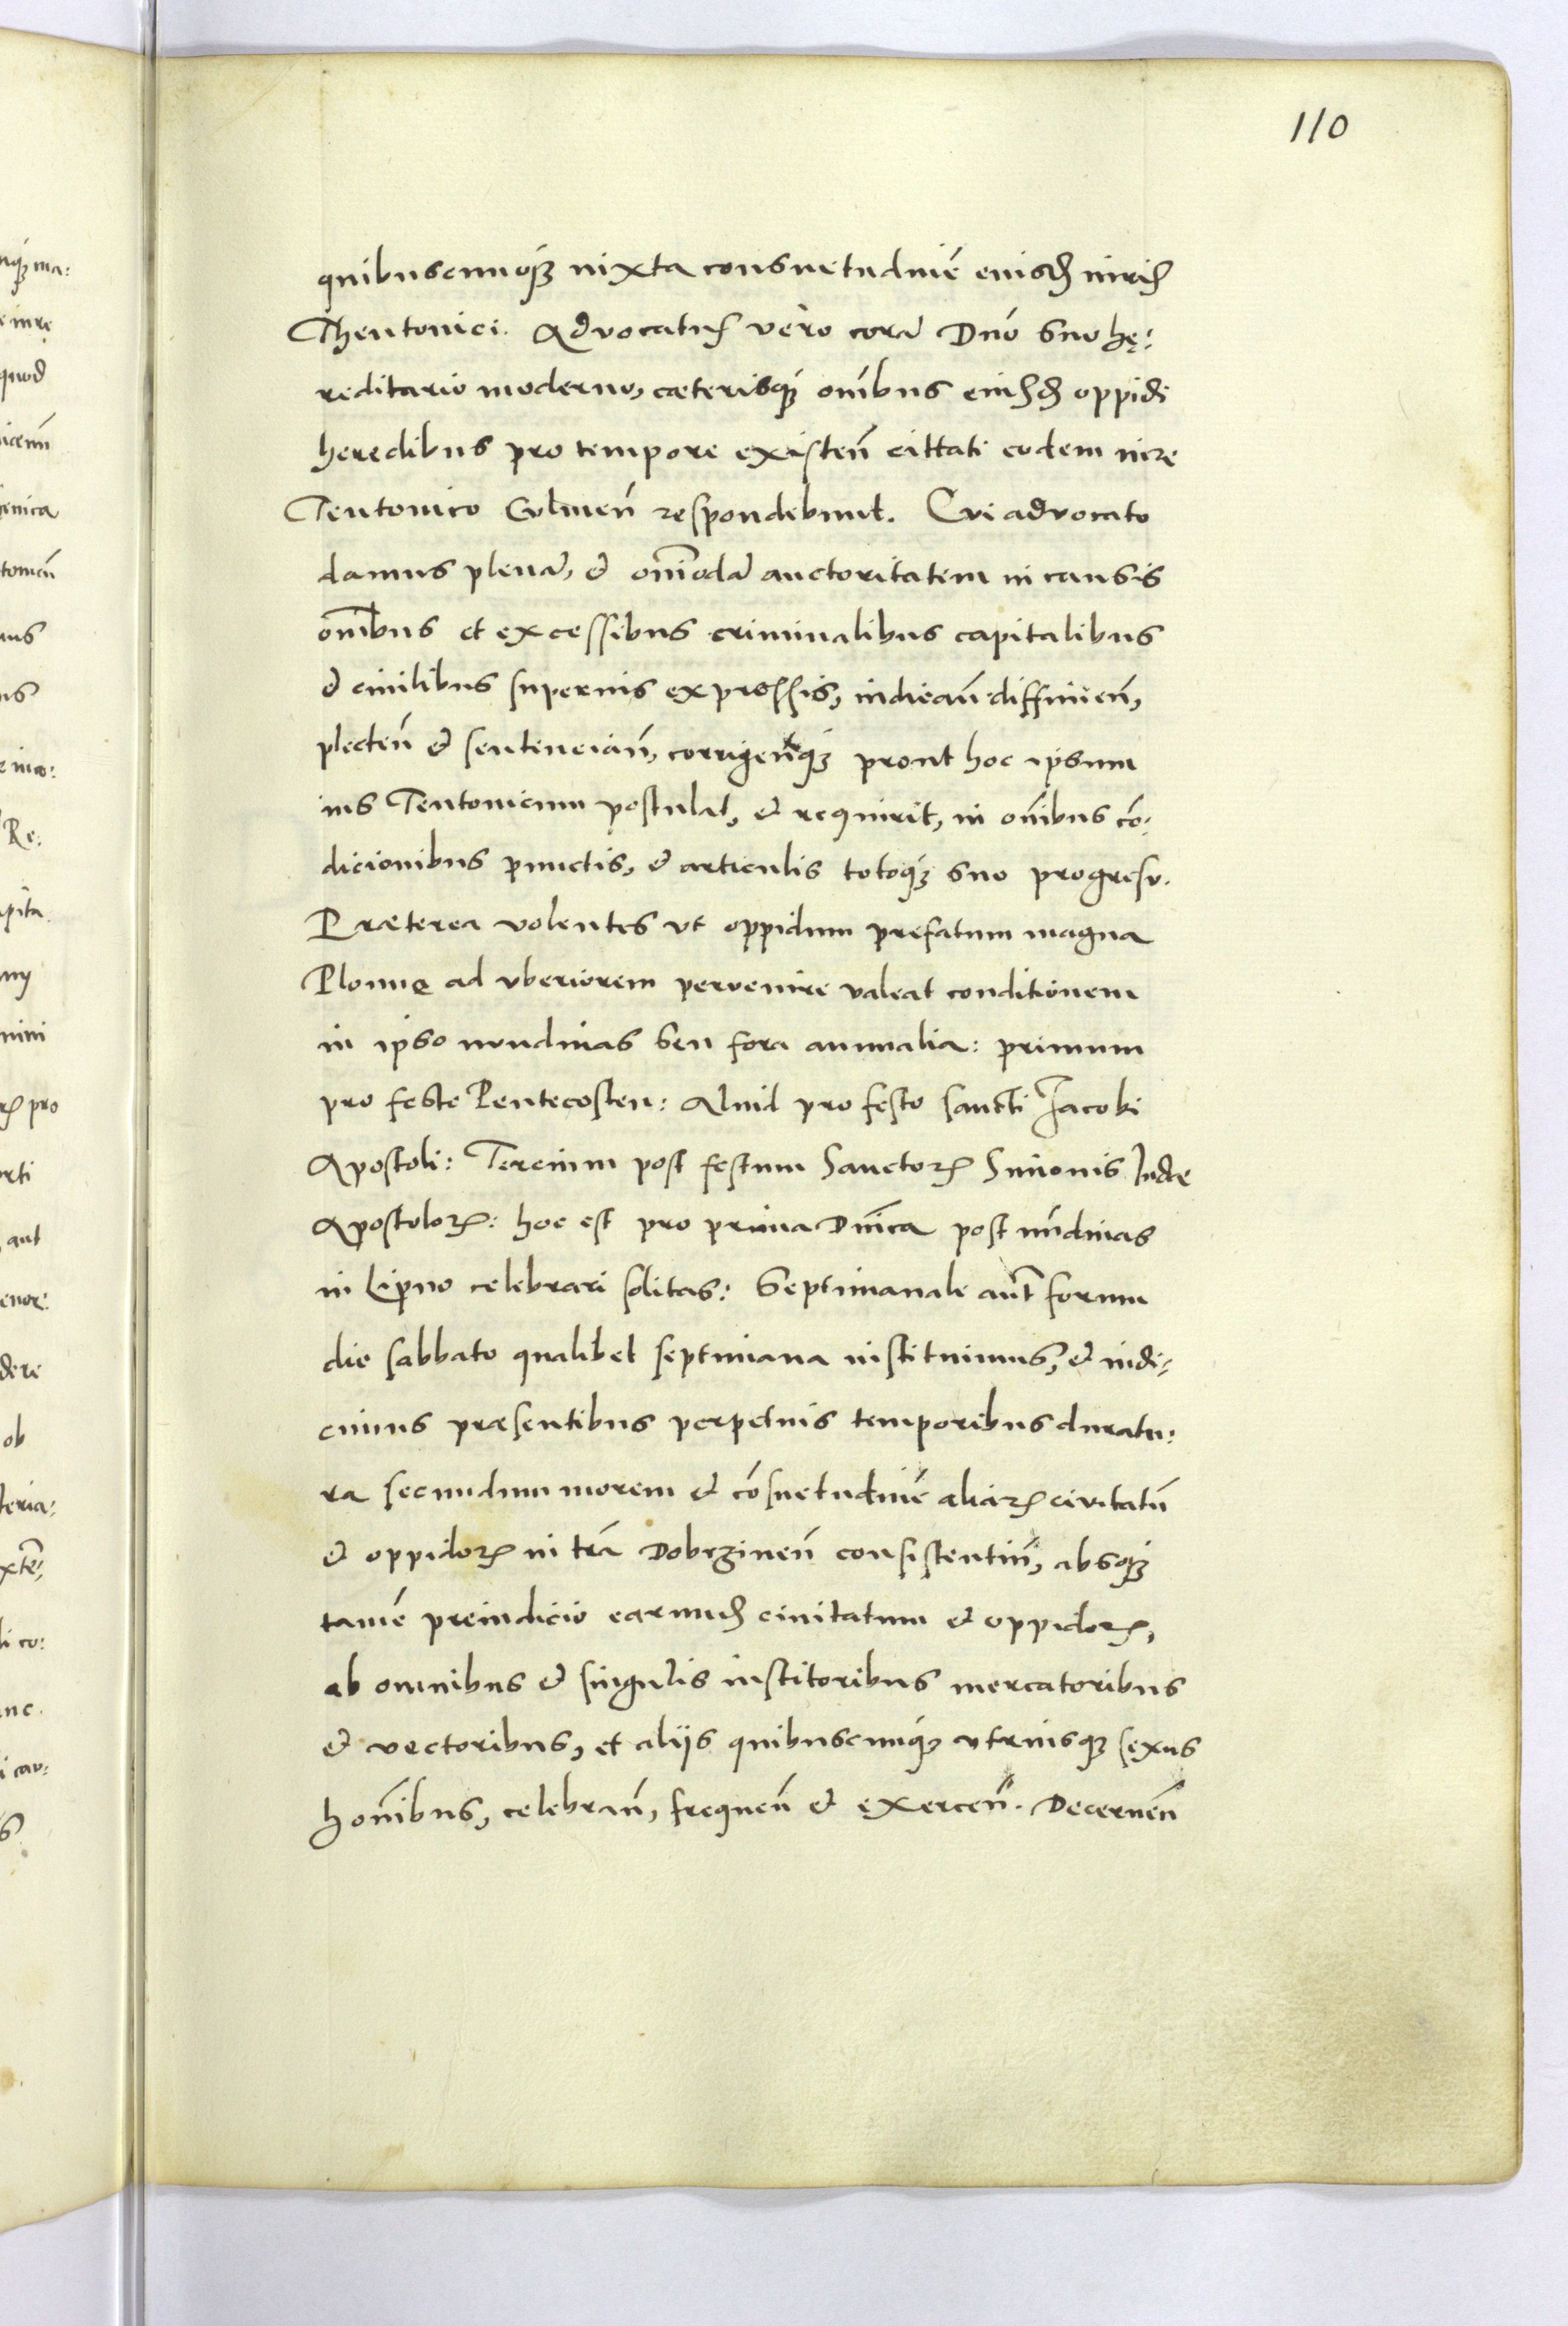 110
quibuscunq₃ iuxta consuetudinē eiusdꝫ iuris
Theutonici. Advocatus vero corā Dnō suo hę:
reditario moderno, cæterisq₃ oīnibus eiusdꝫ oppidi
heredibus pro tempore existen̄ cittati eodem iure
Teutonico Culmen̄ respondebunt. Cui advocato
damus plenā, & oīmodā auctoritatem in causis
om̄ibus et excessibus criminalibus capitalibus
& ciuilibus superius expressis, iudican̄ diffinien̄,
plecten̄ & sentencian̄, corrigen̄q₃ prout hoc ipsum
ius Teutonicum postulat, & requirit, in om̄ibus cō:
dicionibus punctis, & articulis totoq₃ suo progresu.
Præterea volentes vt oppidum prefatum magna
Plonne ad vberiorem pervenire valeat conditionem
in ipso nundinas seu fora annualia: primum
pro feste Pentecosten: Aliud pro festo sancti Jacobi
Apostoli: Tercium post festum Sanctoꝝ Simonis Judæ
Apostoloꝝ: hoc est pro prima Dnīca post nūdinas
in Lipno celebrari solitas: Septimanale aut̄ forum
die sabbato qualibet septimana instituimus, & indi:
cimus præsentibus perpetuis temporibus duratu:
ra secundum morem & cōsuetudinē aliaꝝ civitatū
& oppidoꝝ in trā Dobrzinen̄ consistentiū, absq₃
tamē preiudicio earundꝫ ciuitatum & oppidoꝝ,
ab omnibus & singulis institoribus mercatoribus
& vectoribus, et aliis quibuscunq₃ vtriusq₃ sexus
hoīnibus, celebran̄, frequen̄ & exercen̄. Decernen̄